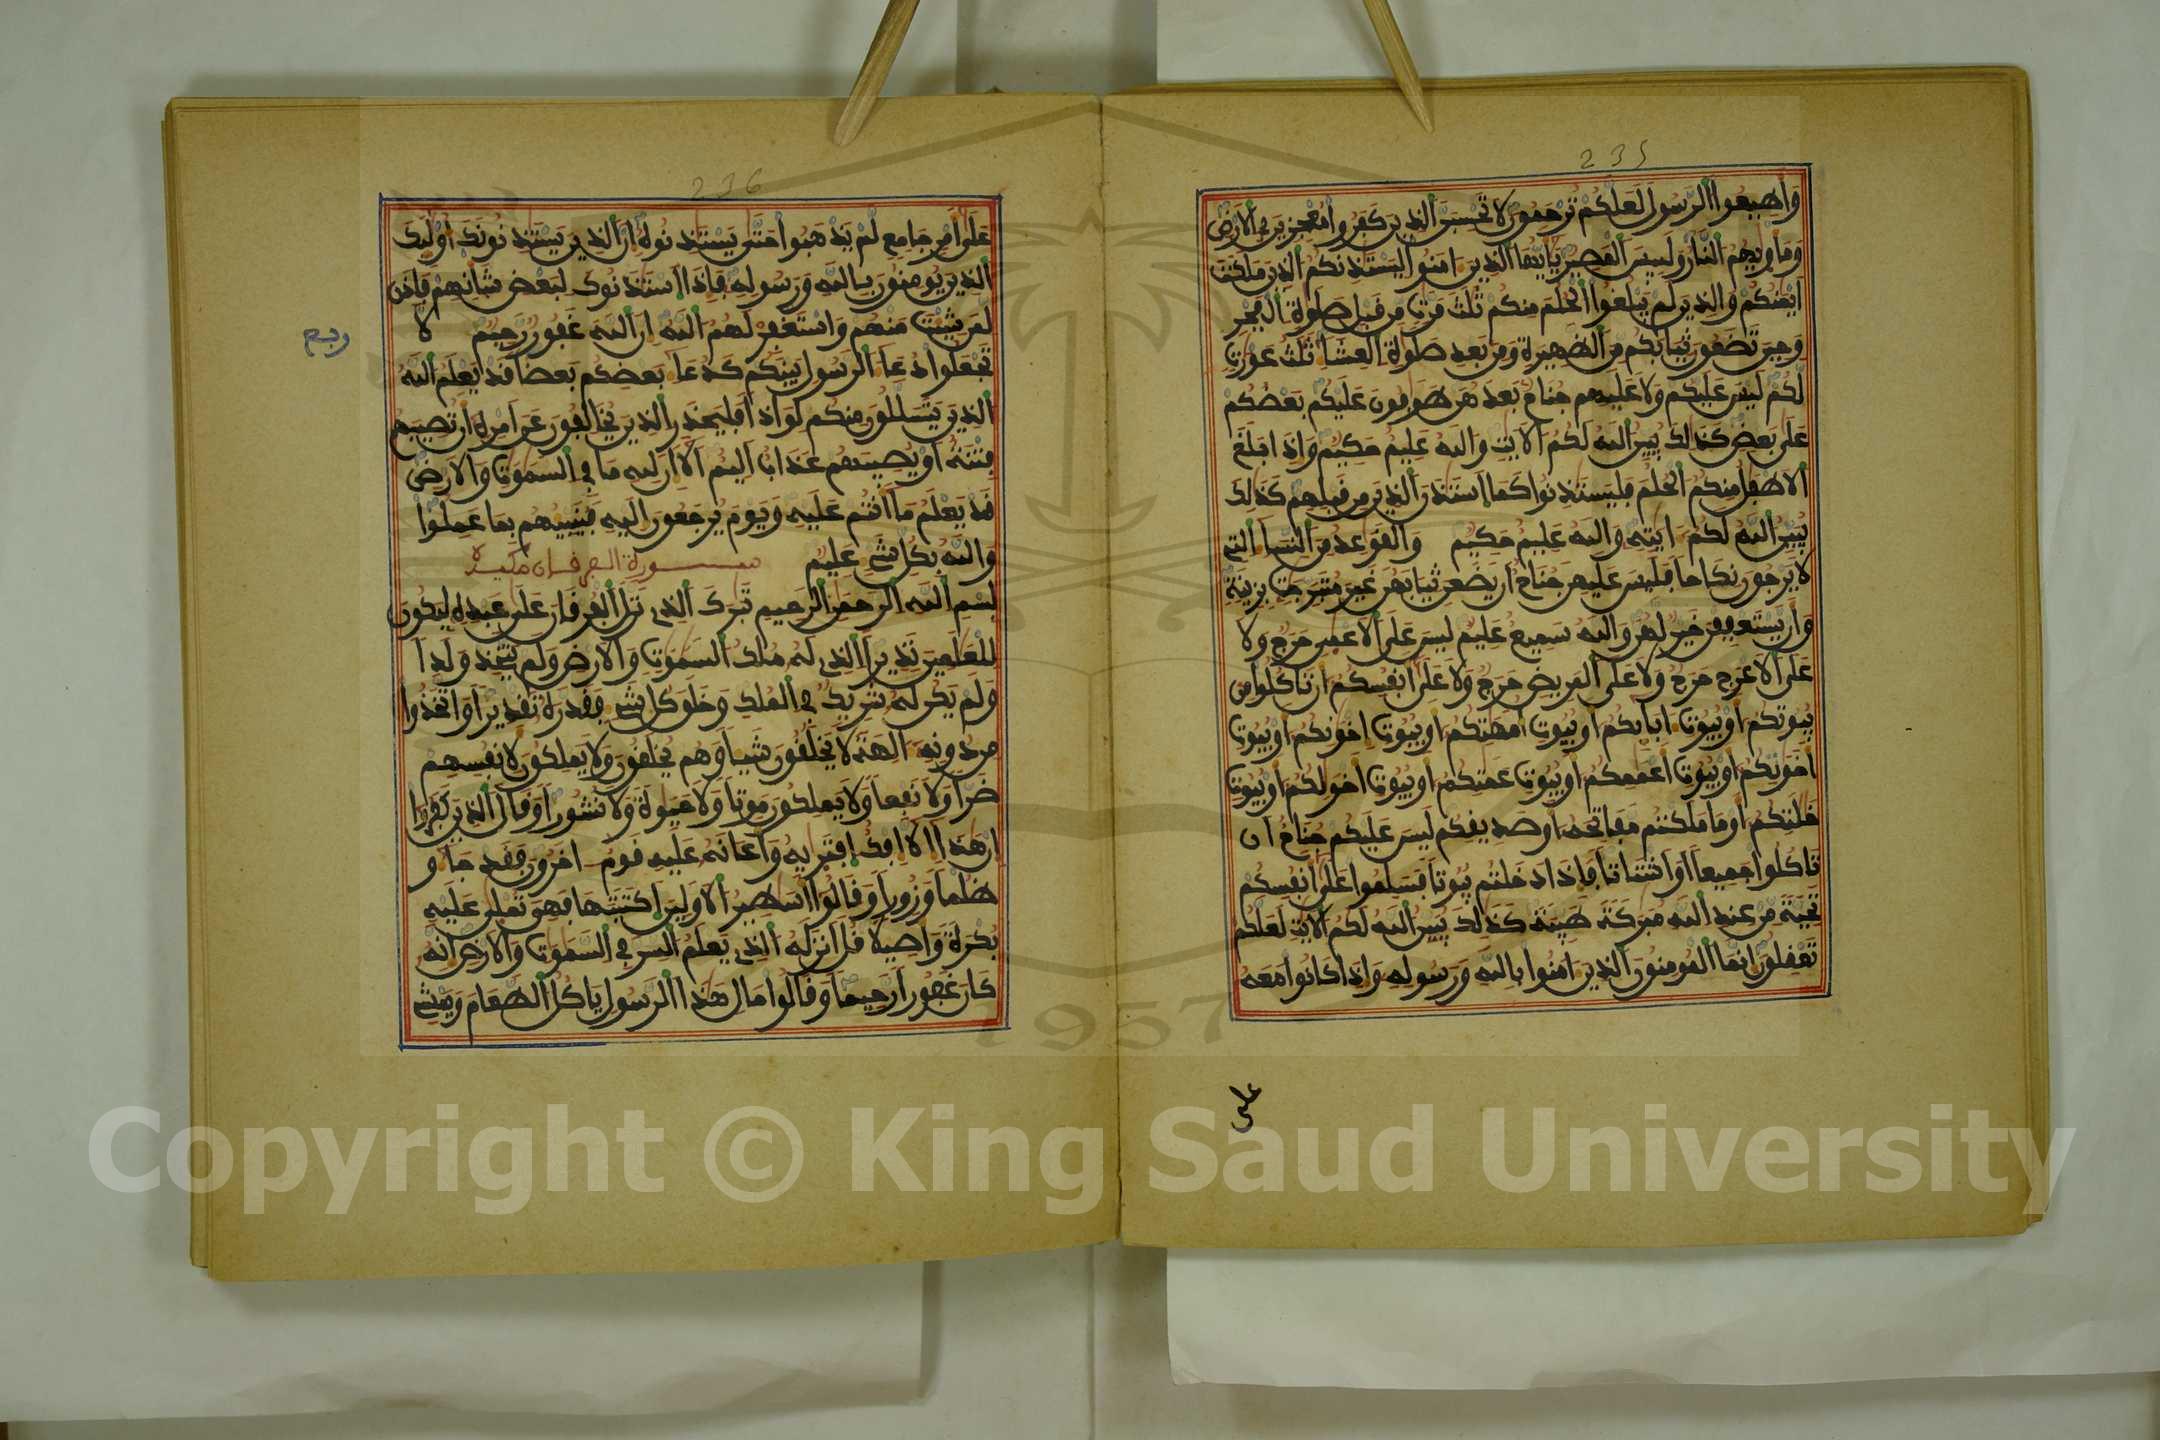 235
وأطيعوا الرسول لعلكم ترحمون لا تحسبن الذين كفروا معجزين في الأرض
ومأويهم النار ولبيس المصير يأيها الذين ءامنوا ليستذنكم الذين ملكت
أيمنكم والذين لم يبلغوا الحلم منكم ثلث مرت من قبل صلوة الفجر
وحين تضعون ثيابكم من الظهيرة ومن بعد صلوة العشاء ثلث عورت
لكم ليس عليكم ولا عليهم جناح بعدهن طوفون عليكم بعضكم
على بعض كذلك يبين الله لكم الايت والله عليم حكيم وإذا بلغ
الاطفل منكم الحلم فليستذنوا كما استذن الذين من قبلهم كذلك
يبين الله لكم ءايته والله عليم حكيم والقوعد من النساء التي
لا يرجون نكاحا فليس عليهن جناح أن يضعن ثيابهن غير متبرجت بزينة
وأن يستعففن خير لهن والله سميع عليم ليس على الاعمى حرج ولا
على الاعرج حرج ولا على المريض حرج ولا على أنفسكم أن تاكلوا من
بيوتكم أو بيوت ءابائكم أو بيوت أمهتكم أو بيوت إخونكم أو بيوت
أخوتكم أو بيوت أعممكم أو بيوت عمتكم أو بيوت أخولكم أو بيوت
خلتكم أو ما ملكتم مفاتحه أو صديقكم ليس عليكم جناح أن
تاكلوا جميعا أو أشتاتا فإذا دخلتم بيوتا فسلموا على أنفسكم
تحية من عند الله مبركة طيبة كذلك يبين الله لكم الايت لعلكم
تعقلون إنما المومنون الذين ءامنوا بالله ورسوله وإذا كانوا معه
على
236
على أمر جامع لم يذهبوا حتى يستذنوه إن الذين يستذنونك أولئك
الذين يومنون بالله ورسوله فإذا استذنوك لبعض شأنهم فأذن
لمن شئت منهم واستغفر لهم الله إن الله غفور رحيم لا
ربع
تجعلوا دعاء الرسول بينكم كدعاء بعضكم بعضا قد يعلم الله
الذين يتسللون منكم لواذا فليحذر الذين يخالفون عن أمره أن تصيبهم
فتنة أو يصيبهم عذاب أليم ألا إن لله ما في السموت والارض
قد يعلم ما أنتم عليه ويوم يرجعون إليه فينبئهم بما عملوا
والله بكل شيء عليم سورة الفرقان مكية
بسم الله الرحمن الرحيم تبرك الذي نزل الفرقان على عبده ليكون
للعلمين نذيرا الذي له ملك السموت والارض ولم يتخذ ولدا
ولم يكن له شريك في الملك وخلق كل شيء فقدره تقديرا واتخذوا
من دونه ءالهة لا يخلقون شيئا وهم يخلقون ولا يملكون لأنفسهم
ضرا ولا نفعا ولا يملكون موتا ولا حيوة ولا نشورا وقال الذين كفروا
إن هذا إلا إفك افتريه وأعانه عليه قوم ءاخرون فقد جاءو
ظلما وزورا وقالوا أسطير الاولين اكتتبها فهي تملى عليه
بكرة وأصيلا قل أنزله الذي يعلم السر في السموت والارض إنه
كان غفورا رحيما وقالوا مال هذا الرسول ياكل الطعام ويمشي
1957
Copyright © King Saud University